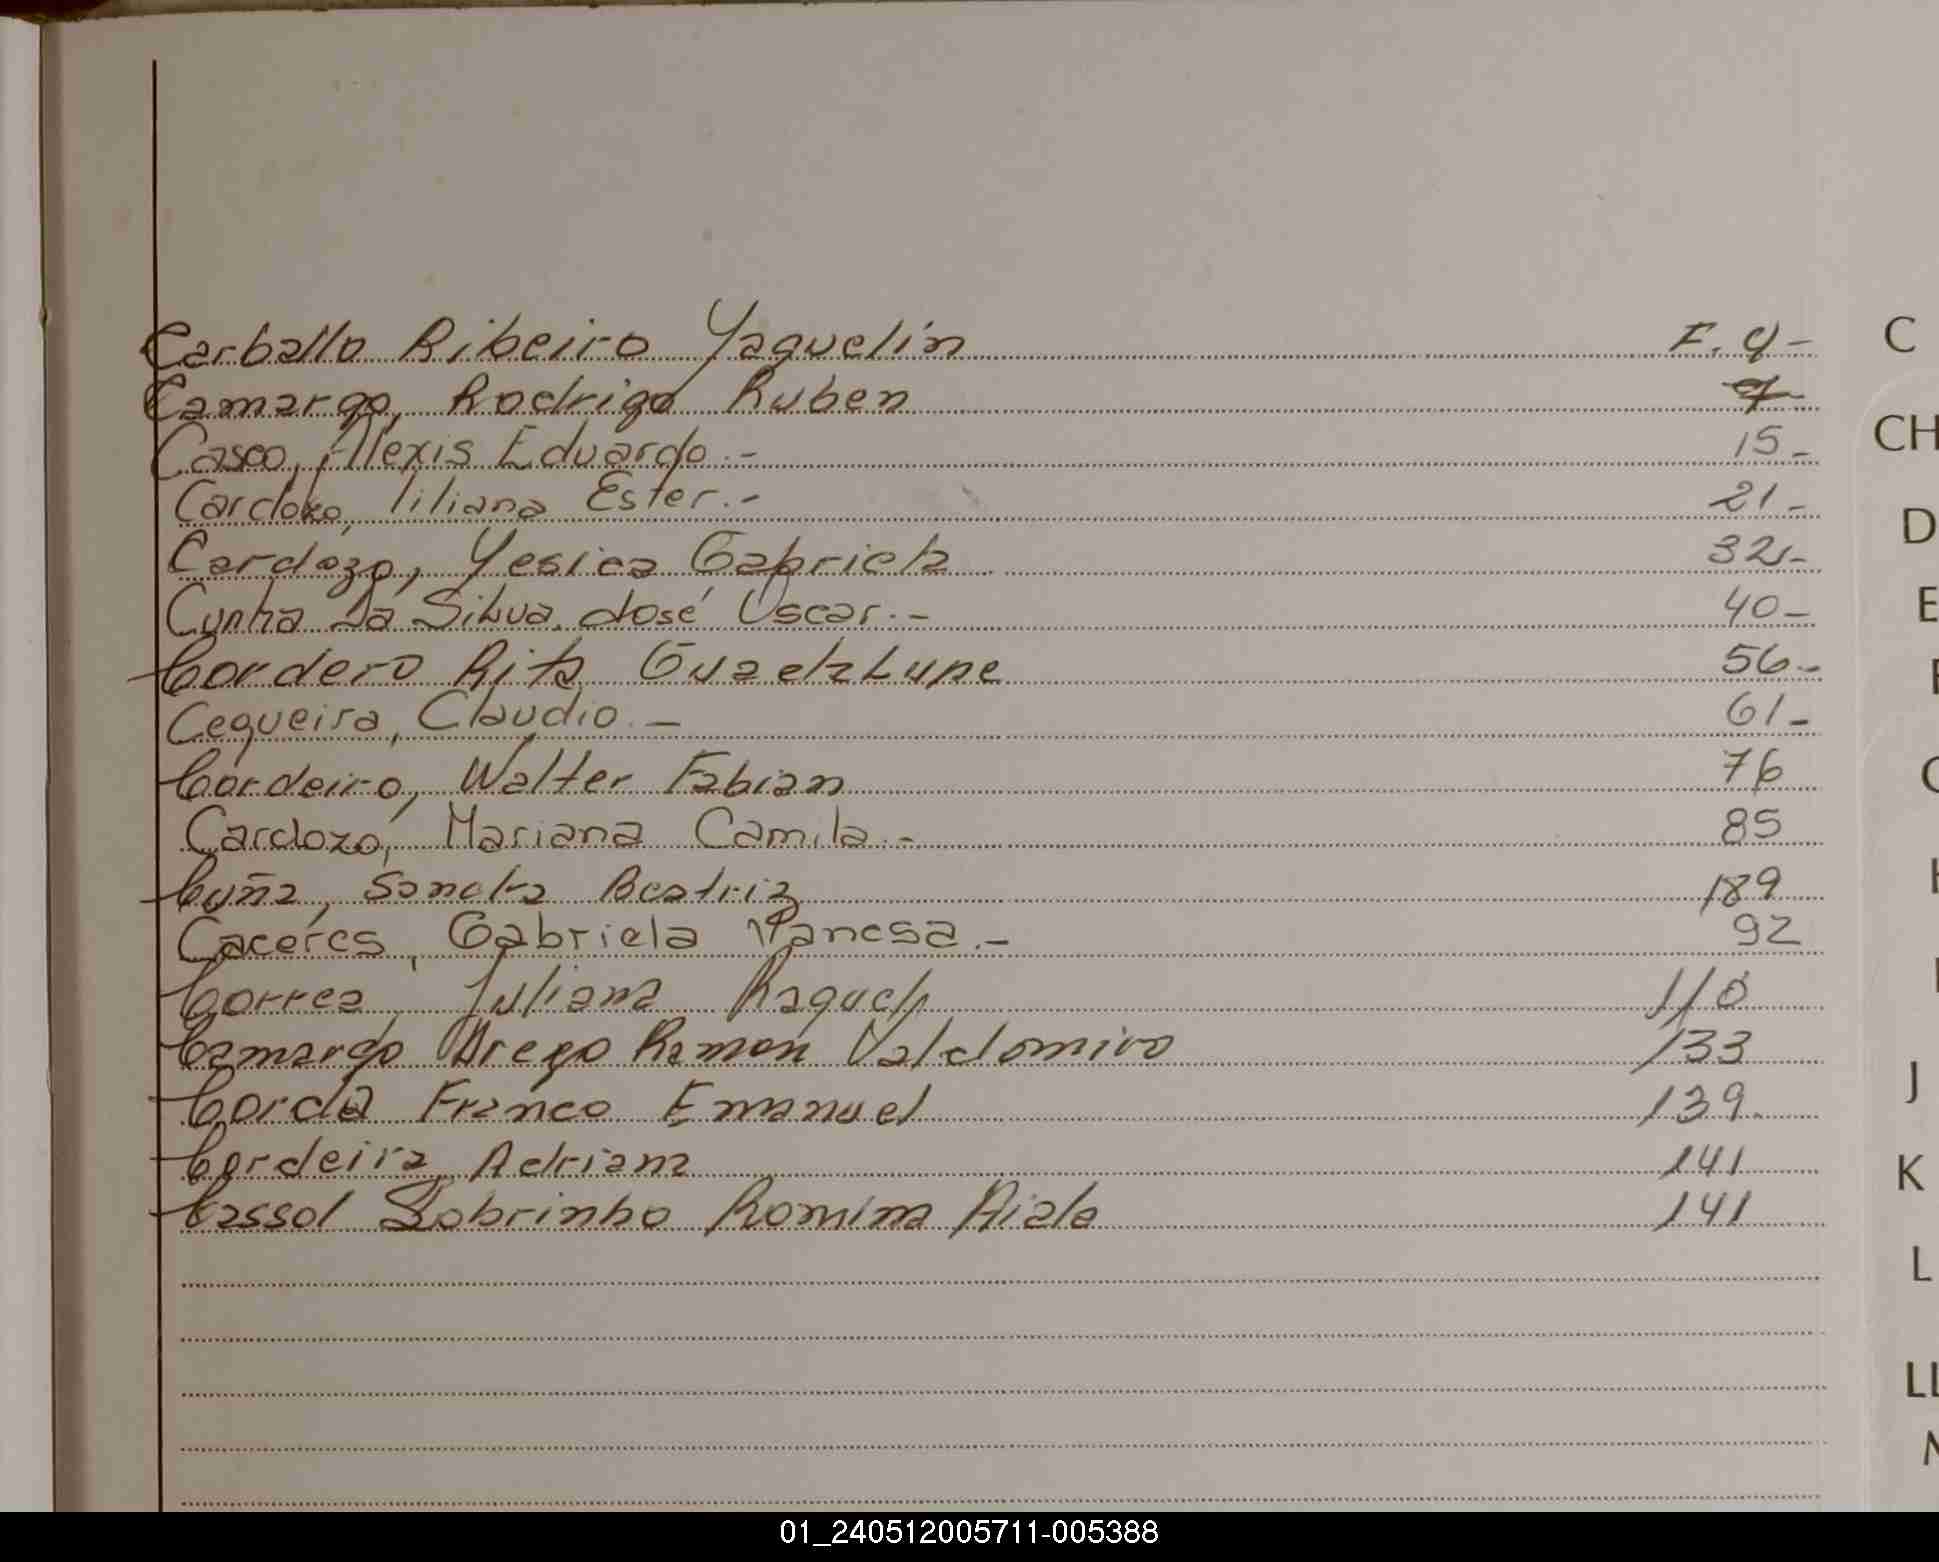 Carballo Ribeiro Yaquelín F. 4-
Camargo, Rodrigo Ruben 7-
Casco, Alexis Eduardo.- 15-
Cardozo, liliana Ester.- 21-
Cardozo, Yesica Gabriela 32-
Cunha Da Silva, José Oscar.- 40-
Cordero Rita Guadalupe 56-
Cequeira, Claudio.- 61-
Cordeiro, Walter Fabian 76
Cardozo, Mariana Camila.- 85
Cuña, Sandra Beatriz 189
Caceres, Gabriela Vanesa.- 92
Correa, Juliana Raquel 110
Camargo Ramon Valdomiro 133
Corda Franco Emanuel 139.
Cordeira, Adriana 141
Cassol Sobrinho Romina 141
C
CH
D
E
J
K
L
LL
M
01_240512005711-005388